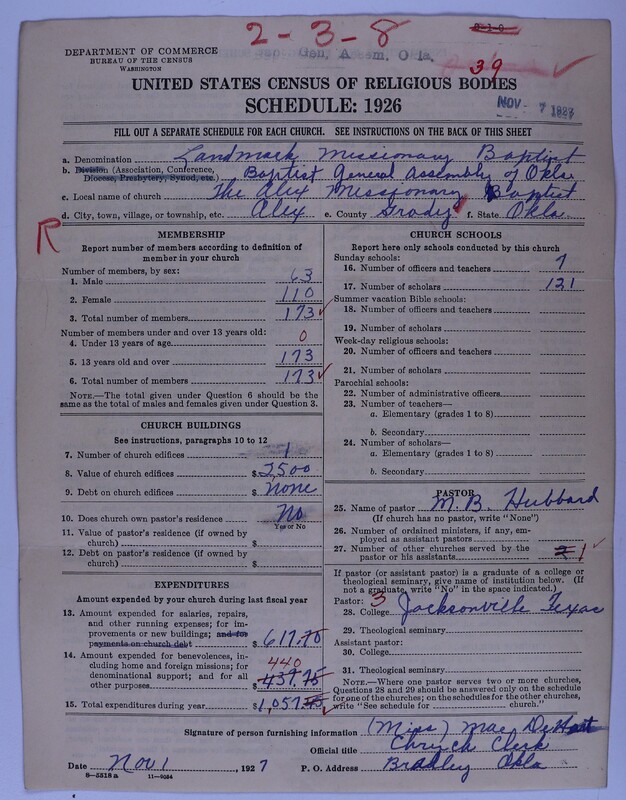 2-3-8
DEPARTMENT OF COMMERCE
BUREAU OF THE CENSUS
WASHINGTON
Gen. Assem. Okla.
39
UNITED STATES CENSUS OF RELIGIOUS BODIES
SCHEDULE: 1926
NOV 7 1927
FILL OUT A SEPARATE SCHEDULE FOR EACH CHURCH. SEE INSTRUCTIONS ON THE BACK OF THIS SHEET
a. Denomination Landmark Missionary Baptist
b. Division (Association, Conference, Diocese, Presbytery, Synod, etc.) Baptist General Assembly of Okla
c. Local name of church The Alex Missionary Baptist
d. City, town, village, or township, etc. Alex e. County Grady f. State Okla.
R
MEMBERSHIP
Report number of members according to definition of
member in your church
Number of members, by sex:
1. Male 63
2. Female 110
3. Total number of members 173
Number of members under and over 13 years old:
4. Under 13 years of age 0
5. 13 years old and over 173
6. Total number of members 173
NOTE.—The total given under Question 6 should be the
same as the total of males and females given under Question 3.
CHURCH BUILDINGS
See instructions, paragraphs 10 to 12
7. Number of church edifices 1
8. Value of church edifices $2500
9. Debt on church edifices $ None
10. Does church own pastor's residence No
Yes or No
11. Value of pastor's residence (if owned by
church) $
12. Debt on pastor's residence (if owned by
church) $
EXPENDITURES
Amount expended by your church during last fiscal year
13. Amount expended for salaries, repairs,
and other running expenses; for im-
provements or new buildings; and for
payments on church debt $ 617.70
14. Amount expended for benevolences,
including home and foreign missions; for
denominational support; and for all
other purposes $ 437.75
440
15. Total expenditures during year $1,057.
CHURCH SCHOOLS
Report here only schools conducted by this church
Sunday schools:
16. Number of officers and teachers 7
17. Number of scholars 121
Summer vacation Bible schools:
18. Number of officers and teachers
19. Number of scholars
Week-day religious schools:
20. Number of officers and teachers
21. Number of scholars
Parochial schools:
22. Number of administrative officers
23. Number of teachers—
a. Elementary (grades 1 to 8)
b. Secondary
24. Number of scholars—
a. Elementary (grades 1 to 8)
b. Secondary
PASTOR
25. Name of pastor M. B. Hubbard
(If church has no pastor, write "None")
26. Number of ordained ministers, if any, em-
ployed as assistant pastors
27. Number of other churches served by the
pastor or his assistants 1
If pastor (or assistant pastor) is a graduate of a college or
theological seminary, give name of institution below. (If
not a graduate, write "No" in the space indicated.)
Pastor: 3
28. College Jacksonville Texas
29. Theological seminary
Assistant pastor:
30. College
31. Theological seminary
NOTE.—Where one pastor serves two or more churches,
Questions 28 and 29 should be answered only on the schedule
for one of the churches; on the schedules for the other churches,
write "See schedule for church."
Signature of person furnishing information (Miss) Mae DeHart
Official title Church Clerk
Date Nov 1, 1927 P. O. Address Bradley Okla
8-5318a 11-9054